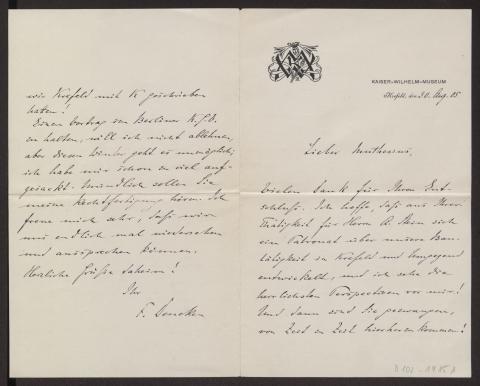 KAISER-WILHELM-MUSEUM
Krefeld, den 20. Aug. 05
Lieber Muthesius,
Vielen Dank für Ihren Ent-
schluß. Ich hoffe, daß aus Ihrer
Thätigkeit für Herrn A. Stein sich
ein Patronat über unsere Bau-
tätigkeit in Krefeld und Umgegend
entwickelt, und ich sehe die
herrlichsten Perspectiven vor mir!
Und dann sind Sie gezwungen,
von Zeit zu Zeit hierherzukommen!
wir Krefeld mit K geschrieben
haben!
Einen Vortrag im Berliner K.G.B.
zu halten, will ich nicht ablehnen,
aber diesen Winter geht es unmöglich,
ich habe mir schon zu viel auf-
gesackt. Mündlich sollen Sie
meine Rechtfertigung hören. Ich
freue mich sehr, daß wir
uns endlich mal wiedersehen
und aussprechen können.
Herzliche Grüße daheim!
Ihr
F. Deneken
D 102 - 1985